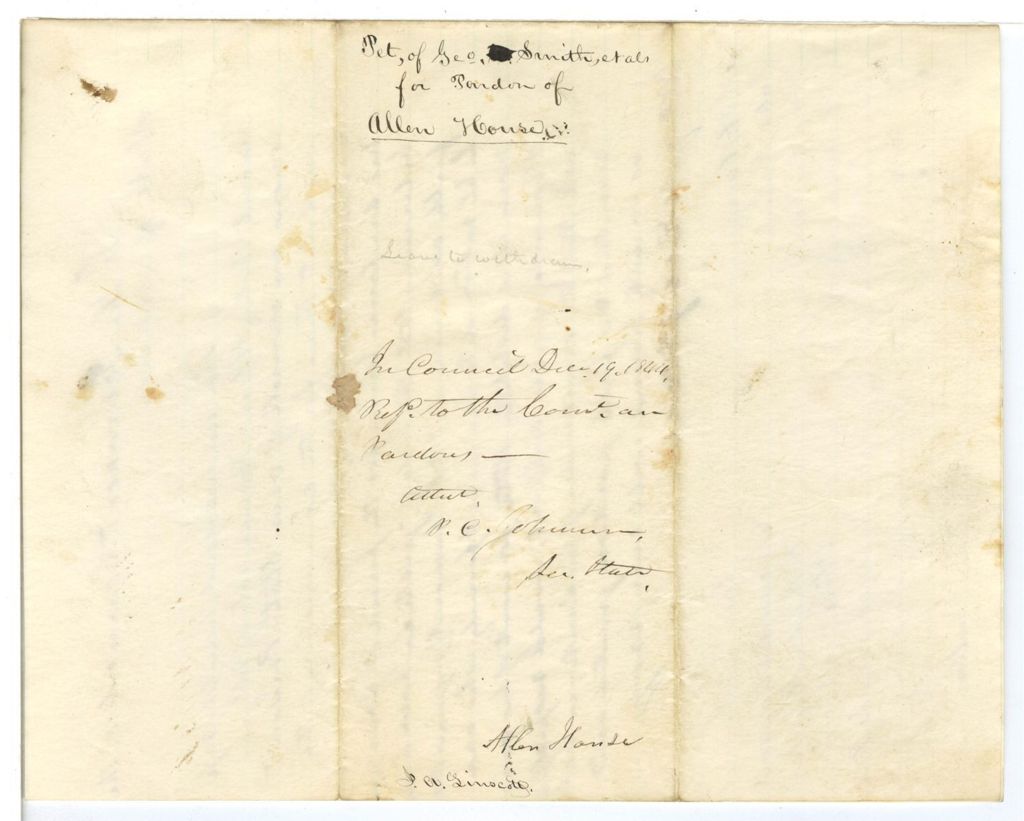 Pet, of Geo. Smith, et als
for Pardon of
Allen House, Jr.
Leave to withdraw,
In Council Dec. 19, 1844,
Ref.d to the Com.e on
Pardons —
Attest,
P. C. Johnson,
Sec. State.
Allen House
Linscott.